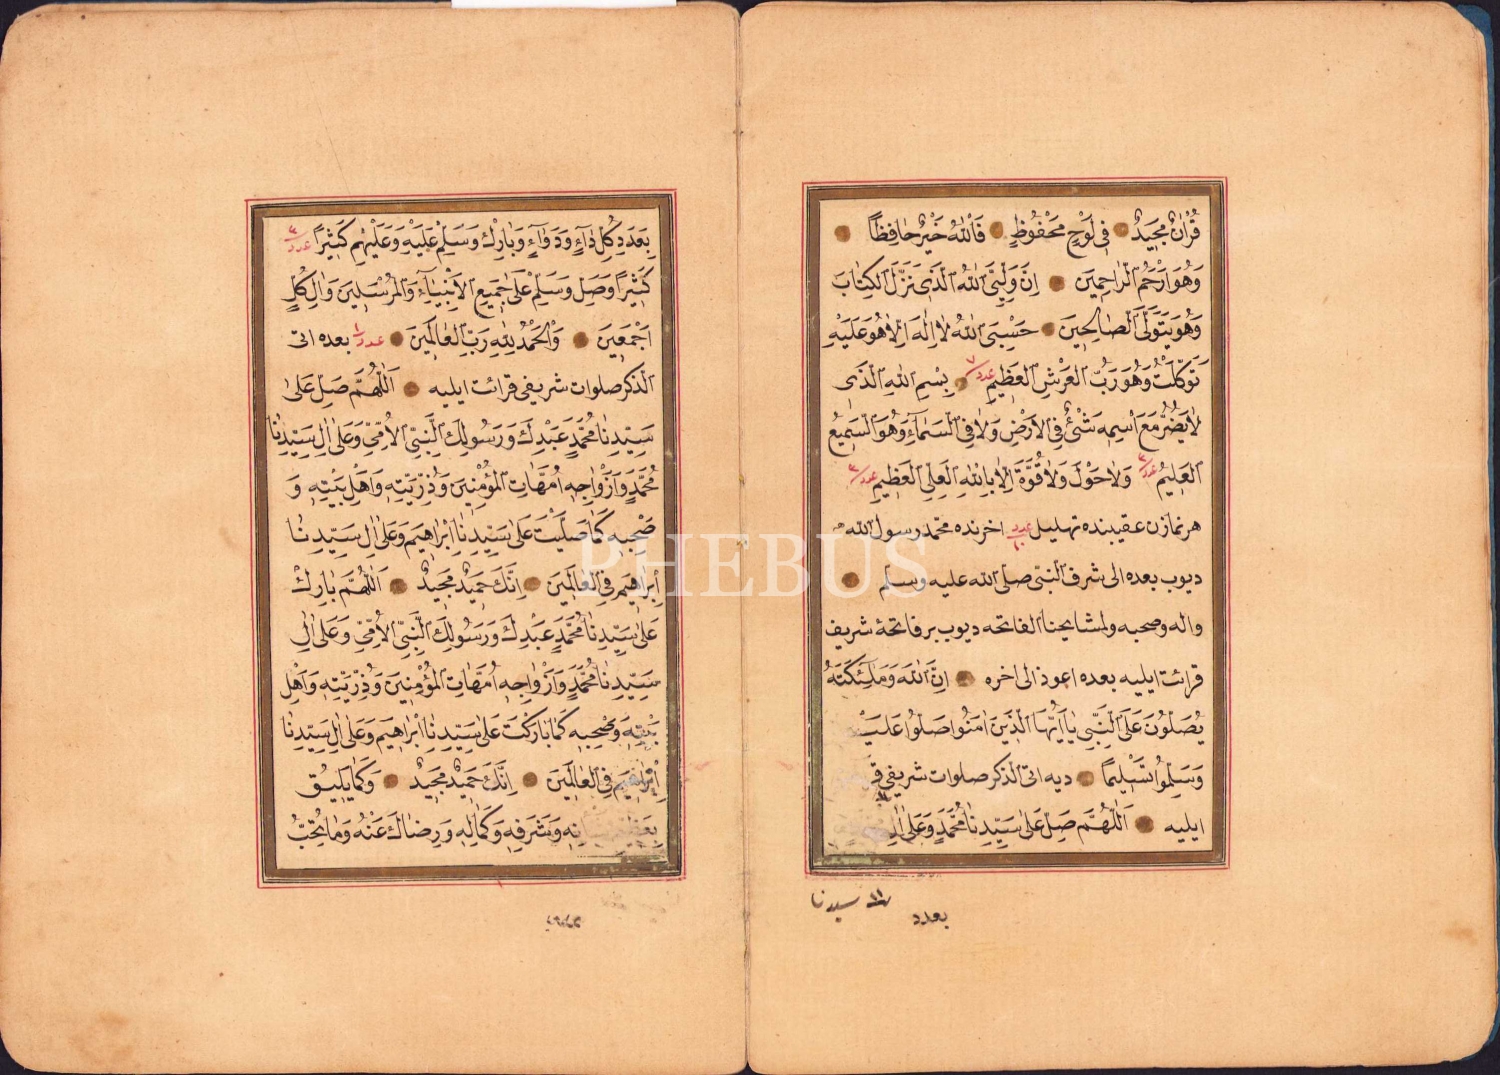 قُرْاٰنٌ مَجِيدٌ فِى لَوْحٍ مَحْفُوظٍ فَاللّٰهُ خَيْرٌ حَافِظًا
وَهُوَ اَرْحَمُ الرَّاحِمِينَ اِنَّ وَلِيِّىَ اللّٰهُ الَّذِى نَزَّلَ الْكِتَابَ
وَهُوَ يَتَوَلَّى الصَّالِحِينَ حَسْبِىَ اللّٰهُ لَا اِلٰهَ اِلَّا هُوَ عَلَيْهِ
تَوَكَّلْتُ وَهُوَ رَبُّ الْعَرْشِ الْعَظِيمِ عدد ٧ بِسْمِ اللّٰهِ الَّذِى
لَا يَضُرُّ مَعَ اسْمِهِ شَىْءٌ فِى الْاَرْضِ وَلَا فِى السَّمَاءِ وَهُوَ السَّمِيعُ
الْعَلِيمُ عدد ٣ وَلَا حَوْلَ وَلَا قُوَّةَ اِلَّا بِاللّٰهِ الْعَلِىِّ الْعَظِيمِ عدد ٣
هر نمازن عقبنده تهليل عدد ١٠ اخرنده محمد رسول الله
ديوب بعده الى شرف النبى صلى الله عليه وسلم
واله وصحبه ولمشايخنا الفاتحه ديوب بر فاتحۀ شريف
قرائت ايليه بعده اعوذ الى اخره اِنَّ اللّٰهَ وَمَلٰئِكَتَهُ
يُصَلُّونَ عَلَى النَّبِىِّ يَا اَيُّهَا الَّذِينَ اٰمَنُوا صَلُّوا عَلَيْهِ
وَسَلِّمُوا تَسْلِيمًا ديه اتى الذكر صلوات شريفى
ايليه اَللّٰهُمَّ صَلِّ عَلٰى سَيِّدِنَا مُحَمَّدٍ وَعَلٰى اٰلِ
١١ سيدنا
بعدد
بِعَدَدِ كُلِّ دَاءٍ وَدَوَاءٍ وَبَارِكْ وَسَلِّمْ عَلَيْهِ وَعَلَيْهِمْ كَثِيرًا عدد ٣
كَثِيرًا وَصَلِّ وَسَلِّمْ عَلٰى جَمِيعِ الْاَنْبِيَاءِ وَالْمُرْسَلِينَ وَاٰلِ كُلٍّ
اَجْمَعِينَ وَالْحَمْدُ لِلّٰهِ رَبِّ الْعَالَمِينَ عدد ١ بعده اتى
الذكر صلوات شريفى قرائت ايليه اَللّٰهُمَّ صَلِّ عَلٰى
سَيِّدِنَا مُحَمَّدٍ عَبْدِكَ وَرَسُولِكَ النَّبِىِّ الْاُمِّىِّ وَعَلٰى اٰلِ سَيِّدِنَا
مُحَمَّدٍ وَاَزْوَاجِهِ اُمَّهَاتِ الْمُؤْمِنِينَ وَذُرِّيَّتِهِ وَاَهْلِ بَيْتِهِ وَ
صَحْبِهِ كَمَا صَلَّيْتَ عَلٰى سَيِّدِنَا اِبْرَاهِيمَ وَعَلٰى اٰلِ سَيِّدِنَا
اِبْرَاهِيمَ فِى الْعَالَمِينَ اِنَّكَ حَمِيدٌ مَجِيدٌ اَللّٰهُمَّ بَارِكْ
عَلٰى سَيِّدِنَا مُحَمَّدٍ عَبْدِكَ وَرَسُولِكَ النَّبِىِّ الْاُمِّىِّ وَعَلٰى اٰلِ
سَيِّدِنَا مُحَمَّدٍ وَاَزْوَاجِهِ اُمَّهَاتِ الْمُؤْمِنِينَ وَذُرِّيَّتِهِ وَاَهْلِ
بَيْتِهِ وَصَحْبِهِ كَمَا بَارَكْتَ عَلٰى سَيِّدِنَا اِبْرَاهِيمَ وَعَلٰى اٰلِ سَيِّدِنَا
اِبْرَاهِيمَ فِى الْعَالَمِينَ اِنَّكَ حَمِيدٌ مَجِيدٌ وَكَمَا يَلِيقُ
بِعَظِيمِ شَانِهِ وَشَرَفِهِ وَكَمَالِهِ وَرِضَاكَ عَنْهُ وَمَا تُحِبُّ
PHEBUS